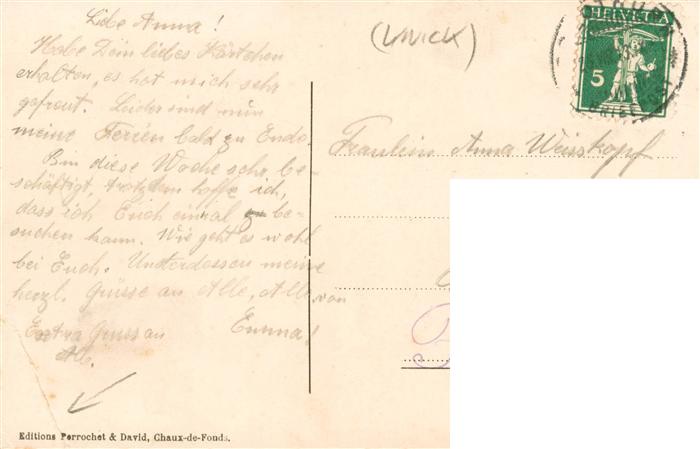 Liebe Anna!
Habe Dein liebes Kärtchen
erhalten, es hat mich sehr
gefreut. Leider sind nun
meine Ferien bald zu Ende.
Bin diese Woche sehr be-
schäftigt, trotzdem hoffe ich,
dass ich Euch einmal be-
suchen kann. Wie geht es wohl
bei Euch. Unterdessen meine
herzl. Grüsse an Alle, Alle von
Emma!
Extra Gruss an
Editions Perrochet & David, Chaux-de-Fonds.
HELVETIA
5
Fräulein Anna Weisskopf